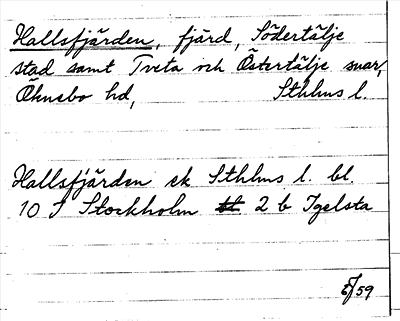 Hallsfjärden, fjärd, Södertälje
stad samt Tveta och Östertälje snar,
Öknebo hd, Sthlms l.
Hallsfjärden ek Sthlms l. bl.
10 I Stockholm 2 b Igelsta
59